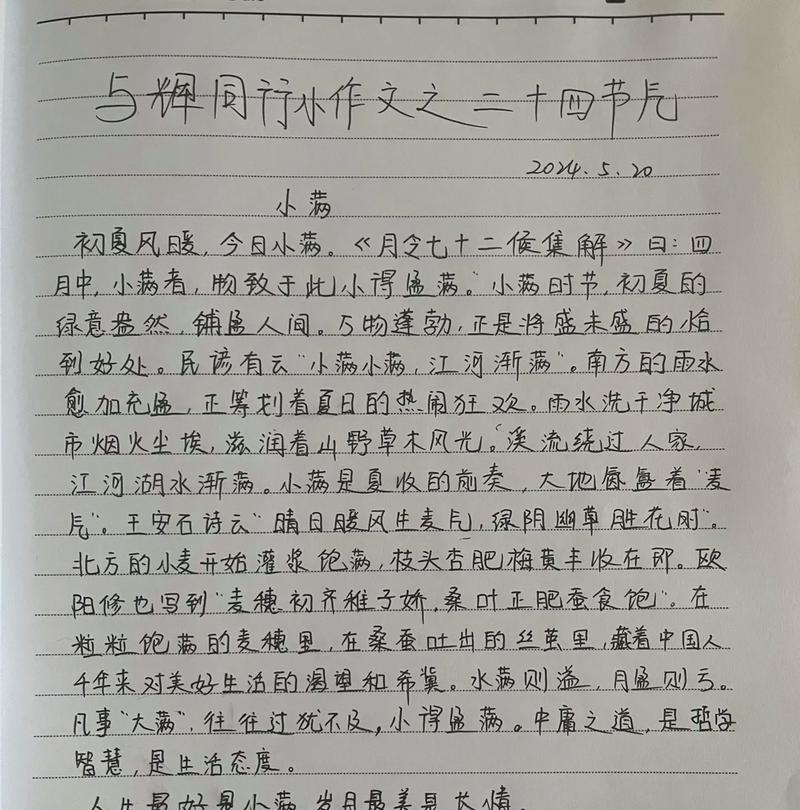 与辉同行小作文之二十四节气
2024.5.20
小满
初夏风暖,今日小满。《月令七十二侯集解》曰:四
月中,小满者,物致于此小得盈满。"小满时节,初夏的
绿意盎然,铺盈人间。万物蓬勃,正是将盛未盛的恰
到好处。民谚有云"小满小满,江河渐满"。南方的雨水
愈加充盈,正筹划着夏日的热闹狂欢。雨水洗干净城
市烟火尘埃,滋润着山野草木风光。溪流绕过人家,
江河湖水渐满。小满是夏收的前奏,大地氤氲着"麦
气"。王安石诗云"晴日暖风生麦气,绿阴幽草胜花时"。
北方的小麦开始灌浆饱满,枝头杏肥梅黄丰收在即。欧
阳修也写到"麦穗初齐稚子娇,桑叶正肥蚕食饱"。在
粒粒饱满的麦穗里,在桑蚕吐出的丝茧里,藏着中国人
千年来对美好生活的渴望和希冀。水满则溢,月盈则亏。
凡事"大满",往往过犹不及,小得盈满。中庸之道,是哲学
智慧,是生活态度。
人生最好是小满,岁月最美是长情。